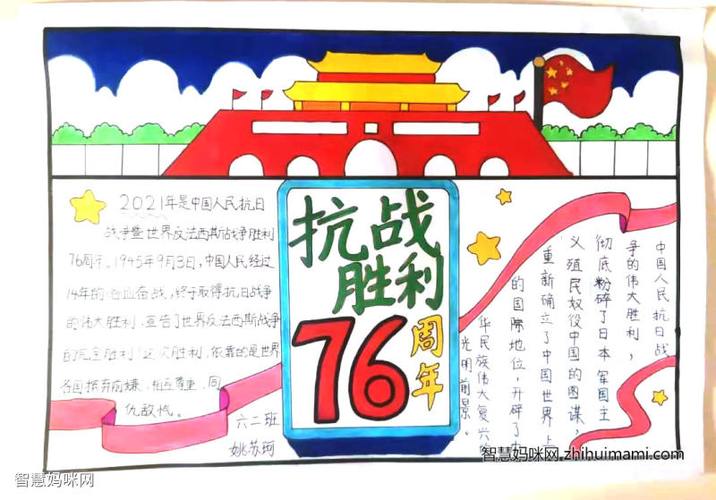 2021年是中国人民抗日
战争暨世界反法西斯战争胜利
76周年。1945年9月3日,中国人民经过
14年的浴血奋战,终于取得抗日战争
的伟大胜利,宣告了世界反法西斯战争
的完全胜利!这次胜利,依靠的是世界
各国抛弃前嫌,相互尊重,同
仇敌忾。
六二班
姚苏珂
抗战
胜利
76
周年
中国人民抗日战
争的伟大胜利,
彻底粉碎了日本军国主
义殖民奴役中国的图谋,
重新确立了中国世界上
的国际地位,开辟了中
华民族伟大复兴的
光明前景。
智慧妈咪网
智慧妈咪网.zhihuimami.com